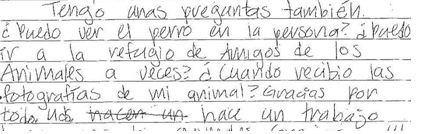 Tengo unas preguntas también.
¿Puedo ver el perro en la persona? ¿Puedo
ir a la refugio de Amigos de los
Animales a veces? ¿Cuando recibio las
fotografías de mi animal? Gracias por
todo. Uds. hacen un hace un trabajo